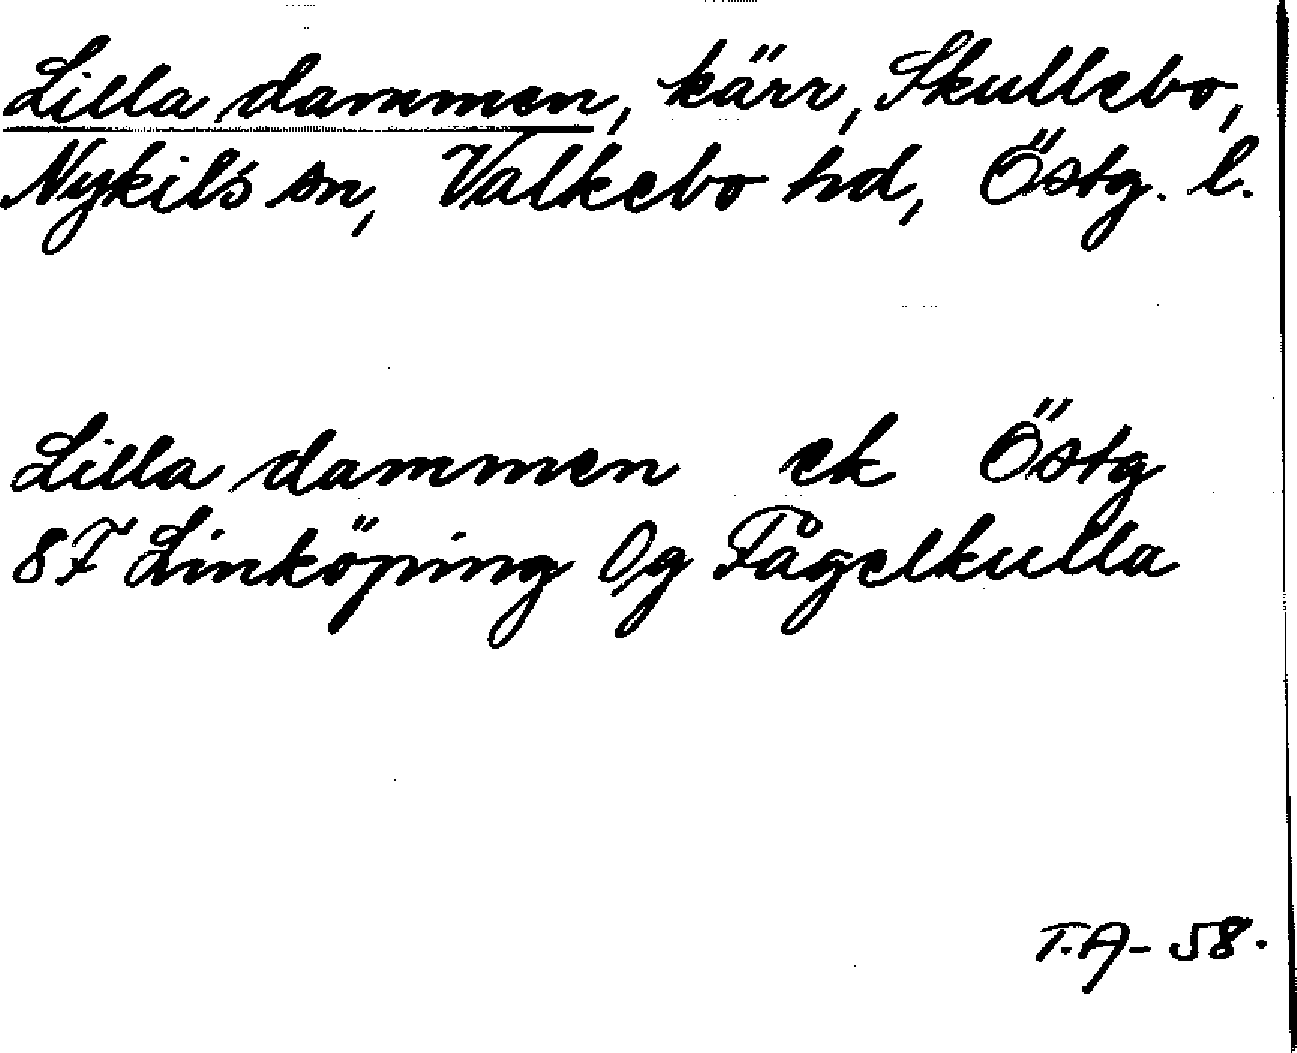 Lilla dammen, kärr, Skullebo,
Nykils sn, Valkebo hd, Östg. l.
Lilla dammen ek Östg
8F Linköping 0g Fågelkulla
T.A- 58.